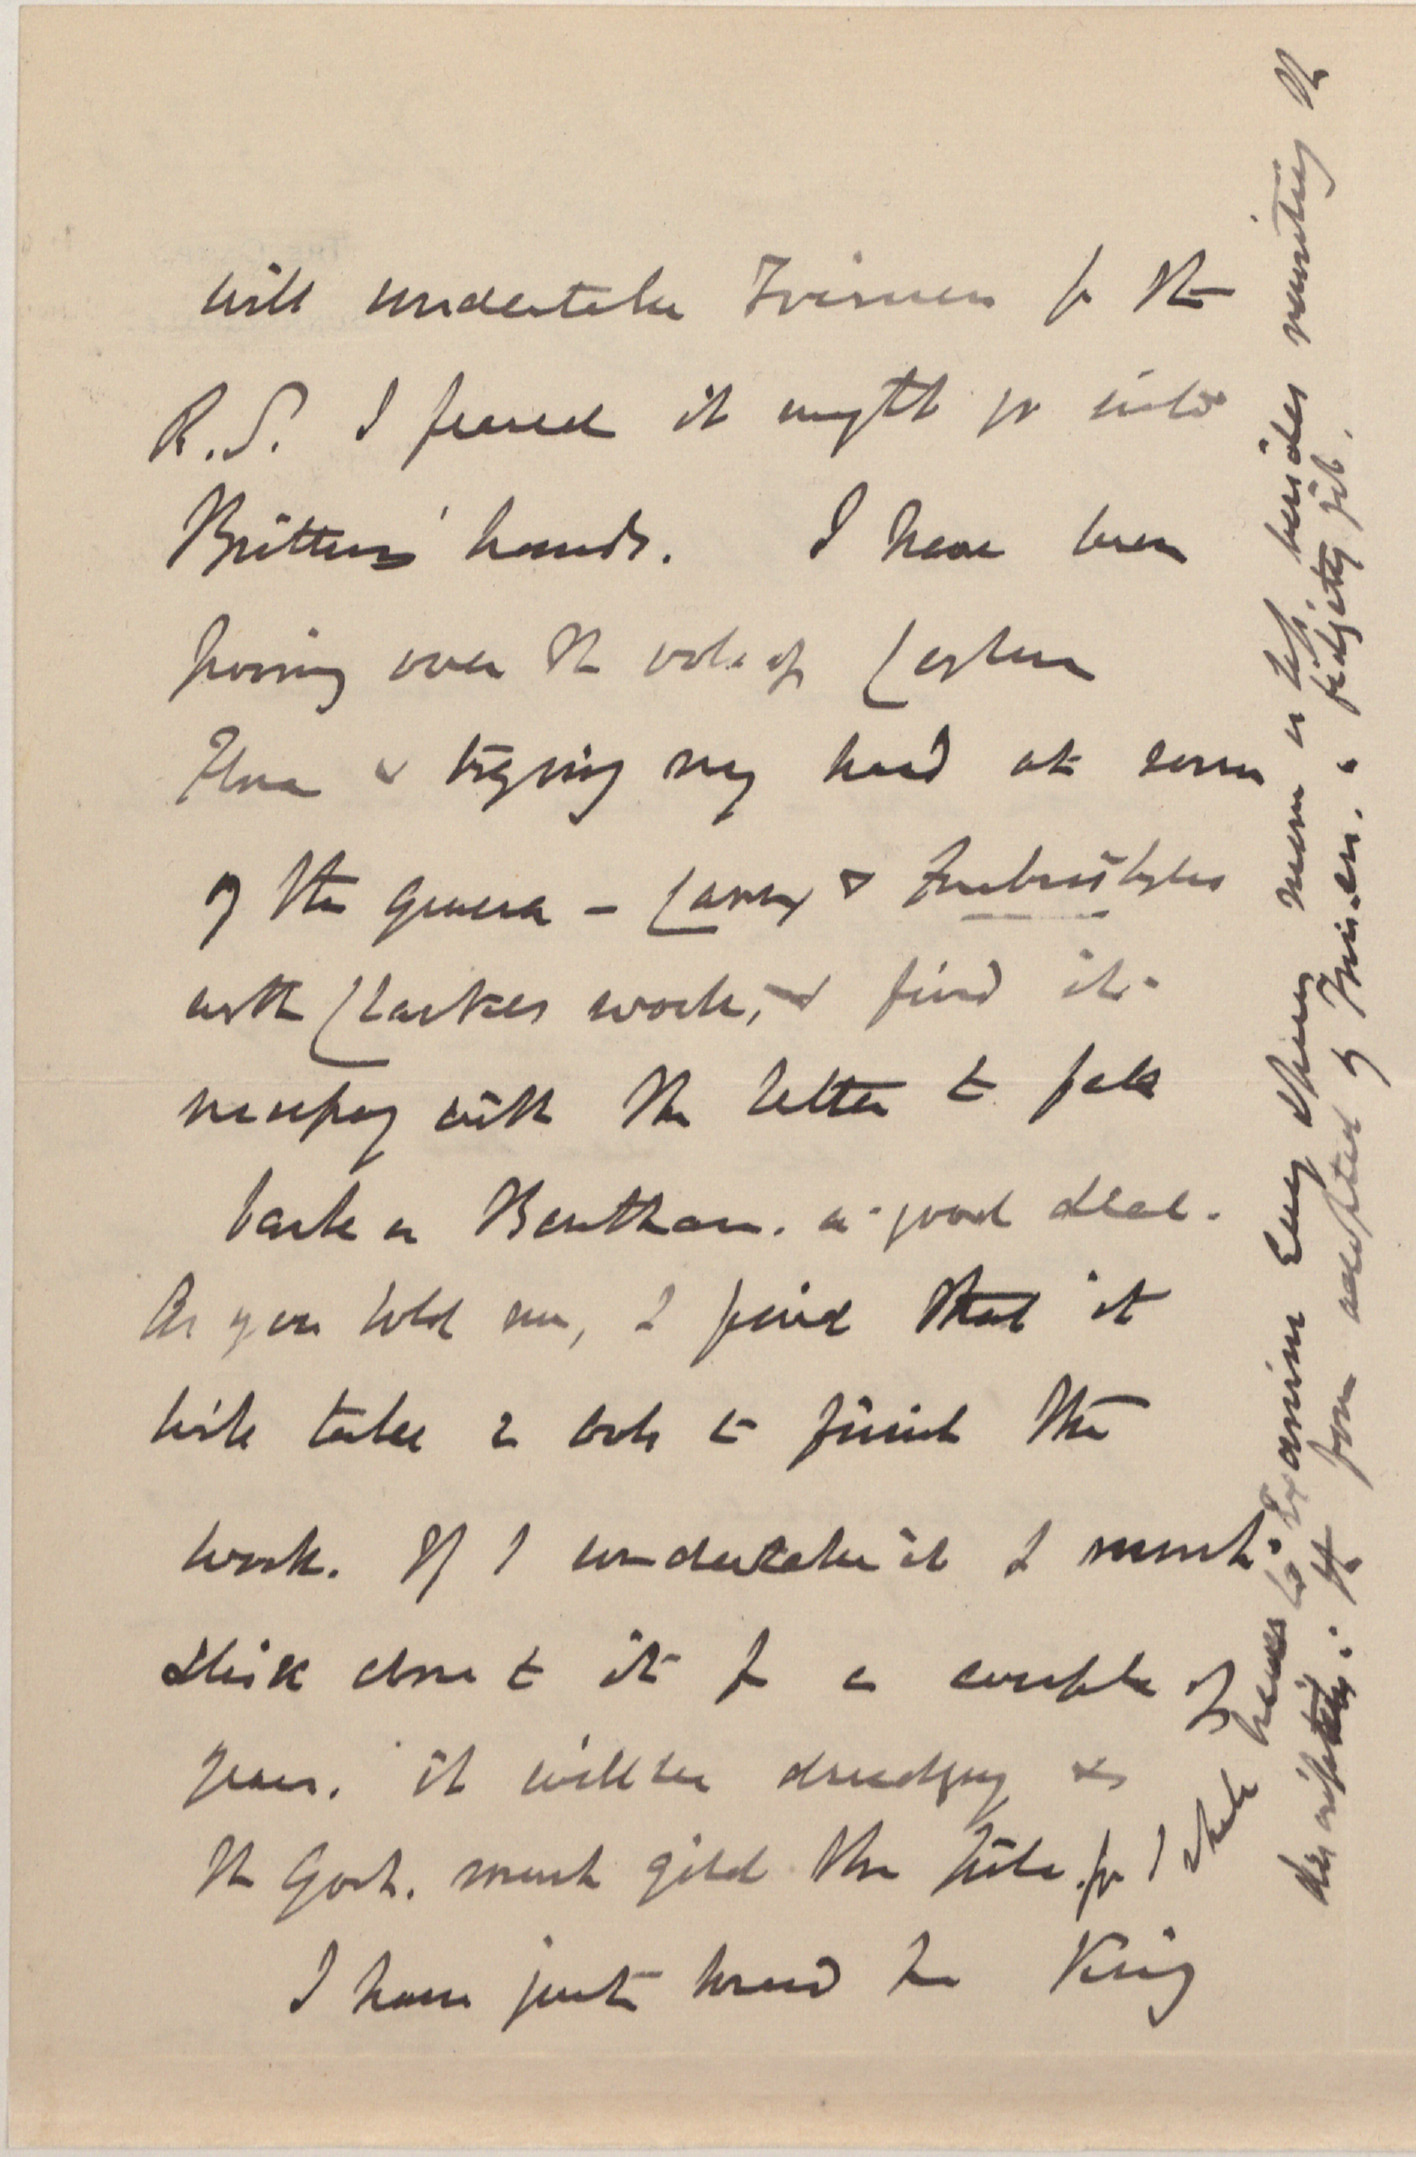 will undertake Trimen for the
R.S. I feared it might go into
Britten's hands. I have been
poring over the vols of Ceylon
Flora & trying my hand at some
of the genera — Carex & Fimbristylis
with Clarkes work, & find it
necessary with the latter to fall
back on Bentham. a good deal.
As you told me, I find that it
will take 2 vols to finish the
work. If I undertake it I must
stick close to it for a couple of
years. it will be drudgery &
the Govt. must gild the pill. for I shall have to examine every species more or less, besides rewriting the
descriptions in the form adopted by Trimen. a fidgetty job.
I have just heard from King